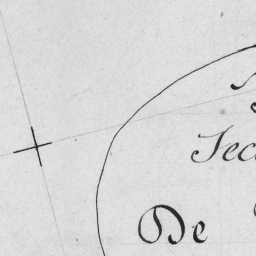 Sec
De